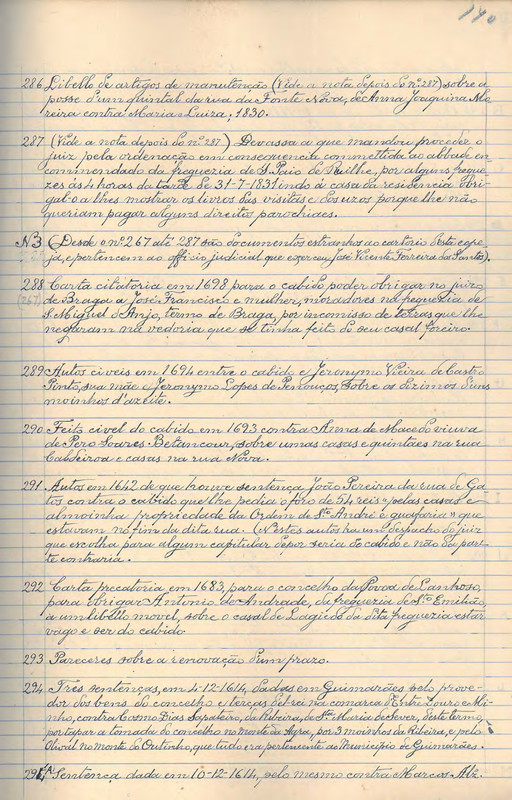 140
286 Libello de artigos de manutenção (Vide a nota depois do nº 287) sobre a
posse d'um quintal da rua da Fonte Nova, de Anna Joaquina Mo
reira contra Maria Luiza; 1830.
287 (Vide a nota depois do nº 287) Devassa a que mandou proceder o
juiz pela ordenação em consequencia commettida ao abbade en
commendado da freguezia de S. Paio de , por alguns fregue
zes ás 4 horas da tarde de 31-7-1831 indo á casa da residencia obri
gal-o a lhes mostrar os livros das visitas e dos uzos porque lhe não
queriam pagar alguns direitos parochiaes.
NB (Desde o nº 267 até 287 são documentos estranhos ao cartorio deste cabi
do, e pertencem ao officio judicial que exerceu José Vicente Ferreira dos Santos).
288 Carta citatoria em 1698 para o cabido poder obrigar no juizo
(267) de Braga a José Francisco e mulher, moradores na freguezia de
S. Miguel o Anjo, termo de Braga, por incomisso de terras que lhe
negaram na vedoria que se tinha feito do seu casal foreiro.
289 Autos civeis em 1694 entre o cabido e Jeronymo Vieira de Castro
Pinto, sua mãe e Jeronymo Lopes de , sobre os dizimos d'uns
moinhos d'azeite.
290 Feito civel do cabido em 1693 contra Anna de Macedo viuva
de Pero Soares Betancour, sobre umas casas e quintaes na rua
Caldeiroa e casas na rua Nova.
291 Autos em 1642 de que houve sentença João Pereira da rua de Ga
tos contra o cabido que lhe pedia o foro de 54 reis "pelas casas e
almoinha propriedade da Ordem de Sto André e guafaria" que
estavam no fim da dita rua. (Nestes autos ha um despacho do juiz
que escolha para algum capitular depor seria do cabido e não da par
te contraria.
292 Carta precatoria em 1683, para o concelho da Povoa de Lanhoso,
para obrigar Antonio de Andrade, da freguezia de Sto Emilião,
a um libello movel, sobre o casal de Lagido da dita freguezia estar
vago e ser do cabido
293 Pareceres sobre a renovação d'um prazo.
294 Tres sentenças, em 4-12-1614, dadas em Guimarães pelo prove-
dor dos bens do concelho e terças del-rei na comarca d'Entre Douro e Mi-
nho, contra Cosmo Dias Sapateiro, da Ribeira, de Sta Maria de Sever, deste termo,
por tapar a tomada do concelho no monte da Agra, por 3 moinhos da Ribeira, e pelo
Olival no monte do Outinho, que tudo era pertencente ao Municipio de Guimarães.
294A Sentença dada em 10-12-1614, pelo mesmo contra Marcos Alz.